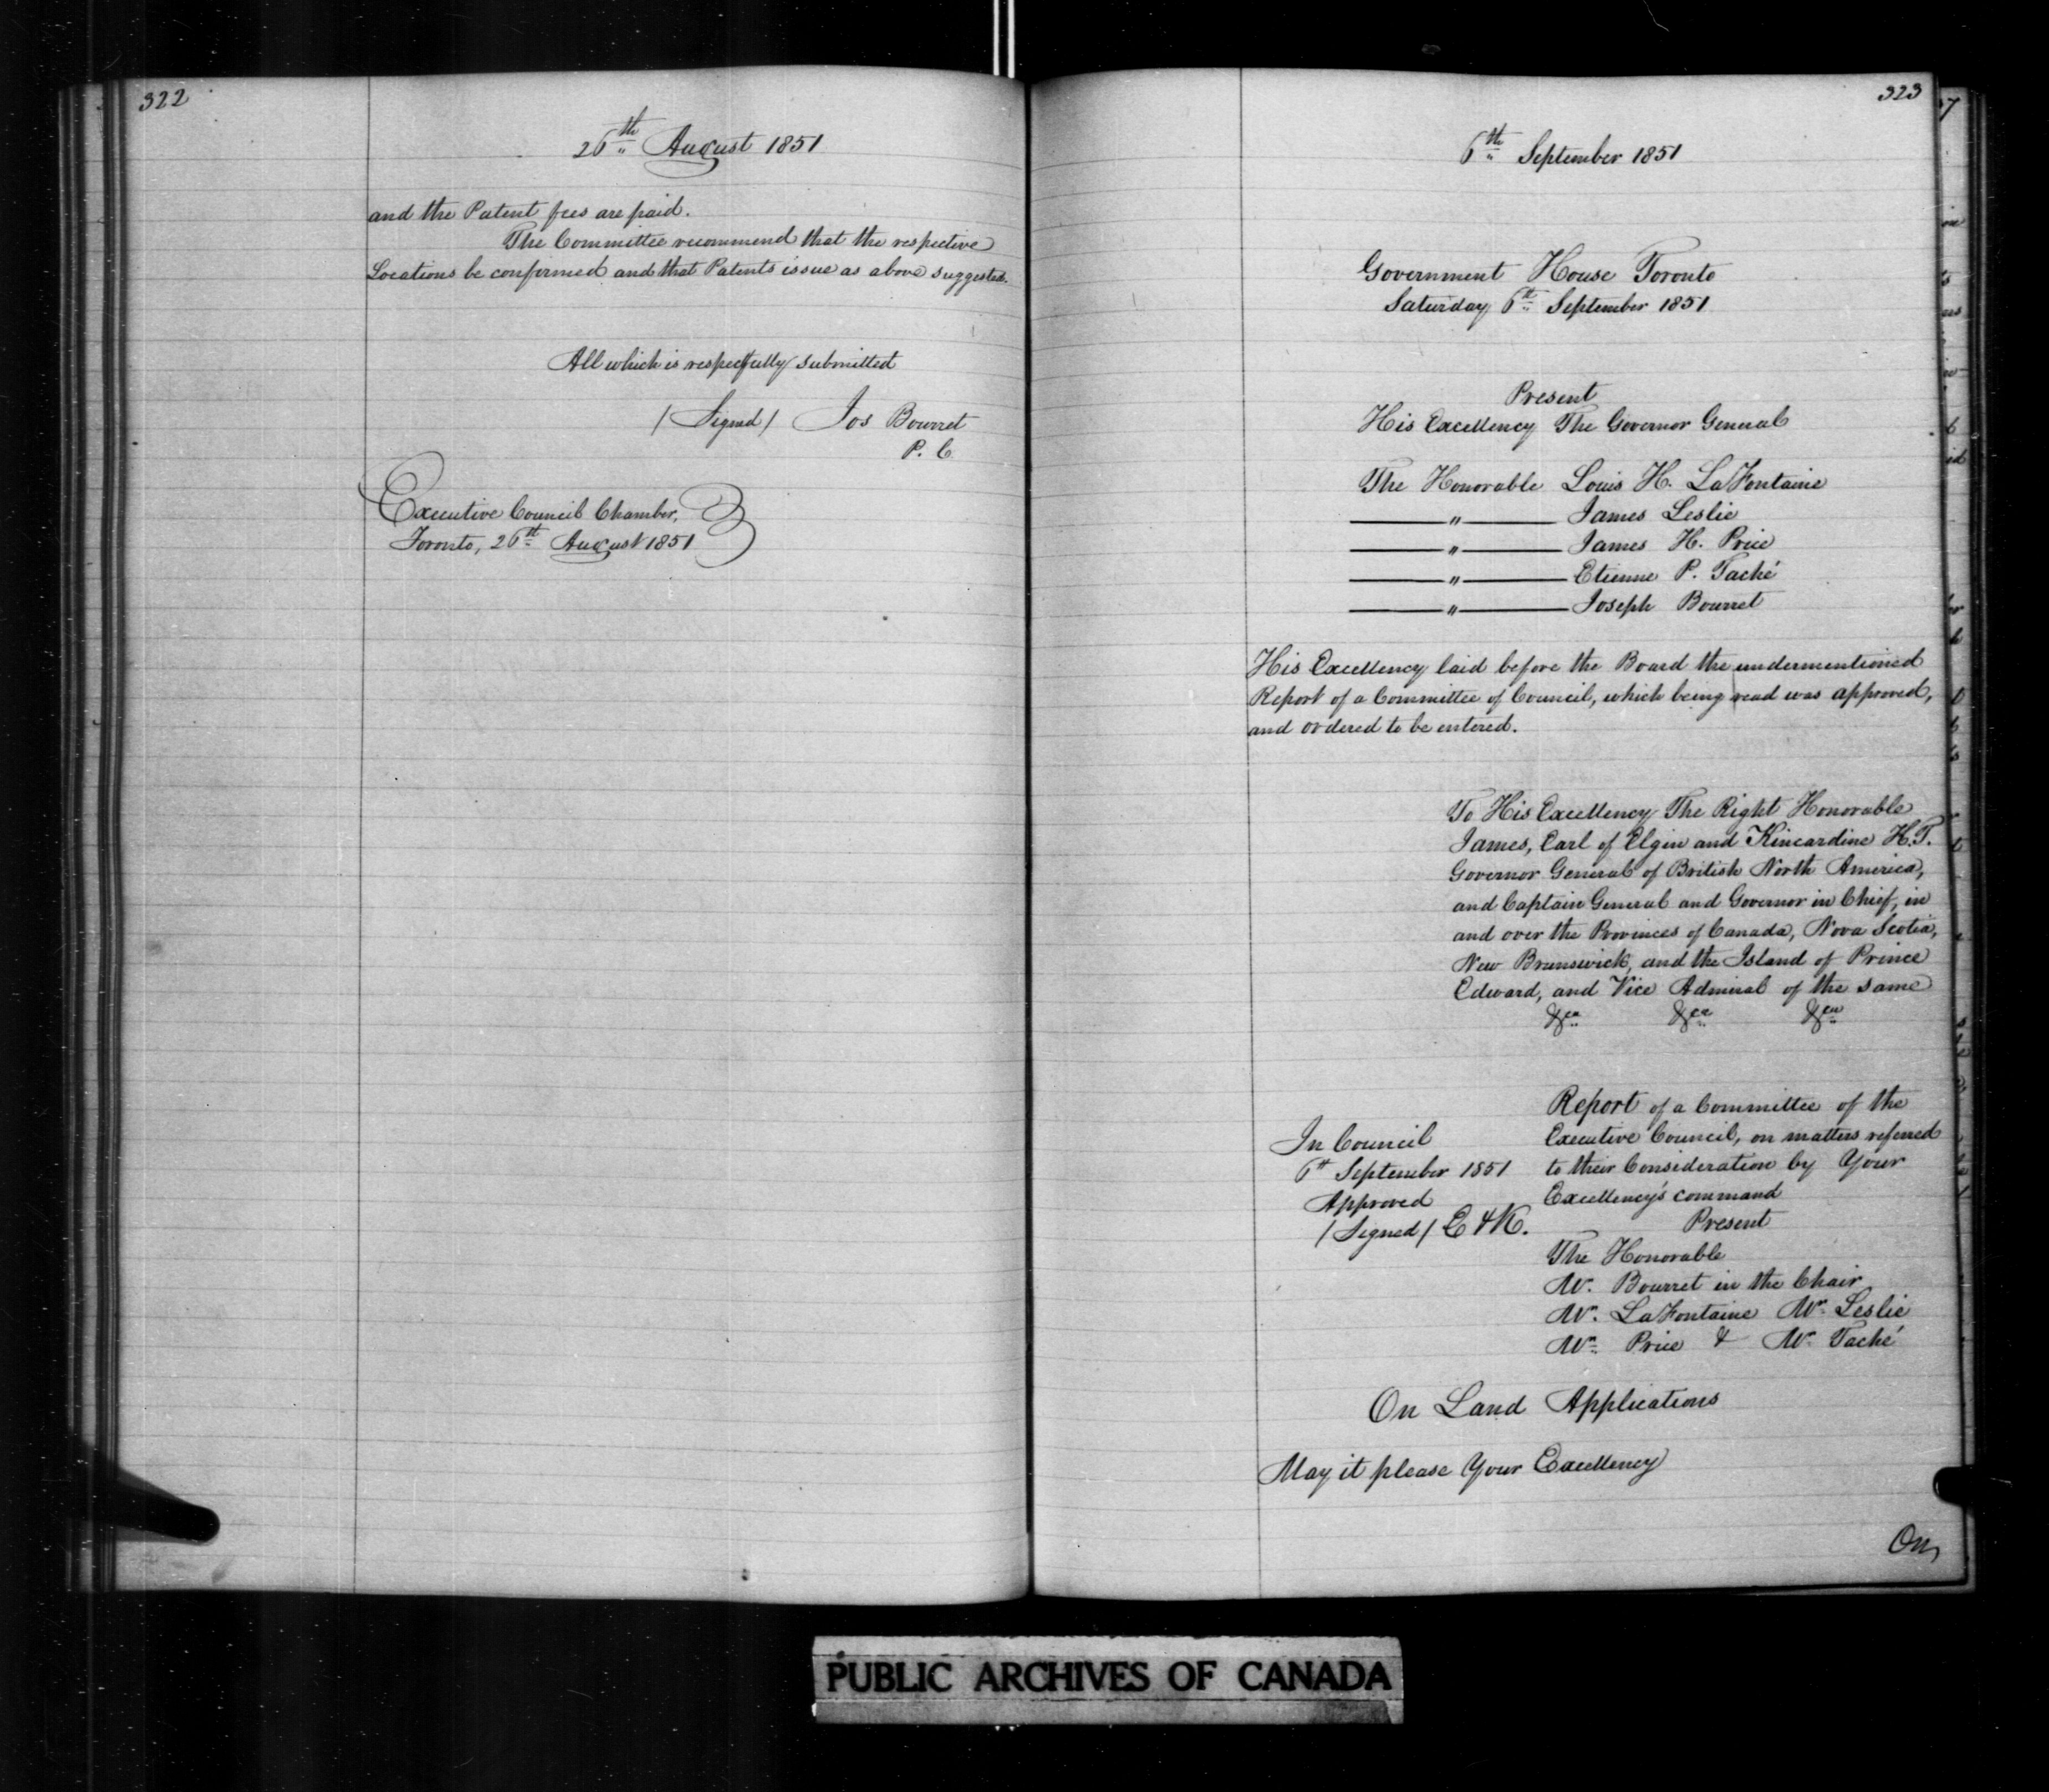 322
26th August 1851
and the Patent fees are paid.
The Committee recommend that the respective
Locations be confirmed and that Patents issue as above suggested.
All which is respectfully submitted
/Signed/ Jos Bourret
P. C
Executive Council Chamber,
Toronto, 26th August 1851
323
6th September 1851
Government House Toronto
Saturday 6th September 1851
Present
His Excellency The Governor General
The Honorable Louis H. LaFontaine
" James Leslie
" James H. Price
" Etienne P. Taché
" Joseph Bourret
His Excellency laid before the Board the undermentioned
Report of a Committee of Council, which being read was approved,
and ordered to be entered.
To His Excellency The Right Honorable
James, Earl of Elgin and Kincardine K.T.
Governor General of British North America,
and Captain General and Governor in Chief, in
and over the Provinces of Canada, Nova Scotia,
New Brunswick, and the Island of Prince
Edward, and Vice Admiral of the same
&ca &ca &ca
In Council
6th September 1851
Approved
/Signed/ E & K.
Report of a Committee of the
Executive Council, on matters referred
to their Consideration by Your
Excellency's command
Present
The Honorable
Mr. Bourret in the Chair
Mr. LaFontaine Mr. Leslie
Mr. Price & Mr. Taché
On Land Applications
May it please Your Excellency
On
PUBLIC ARCHIVES OF CANADA